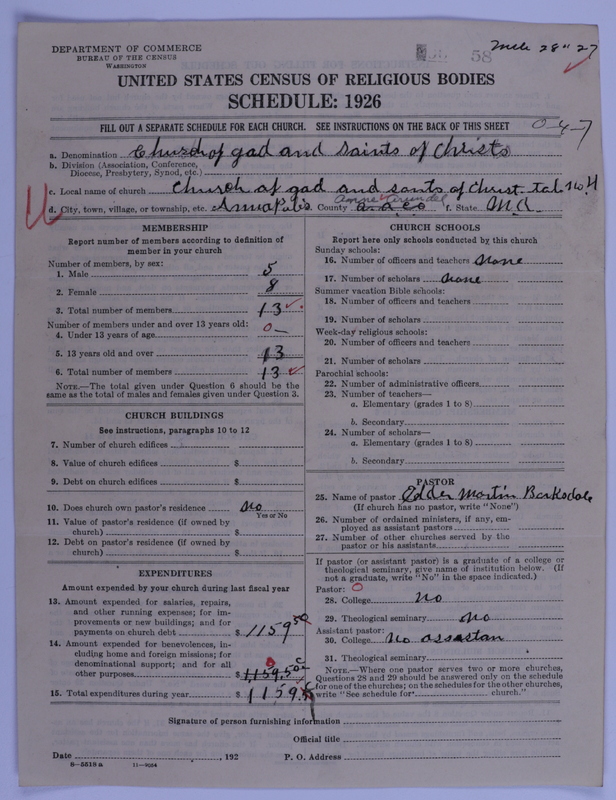 DEPARTMENT OF COMMERCE
BUREAU OF THE CENSUS
WASHINGTON
58
28" 27
UNITED STATES CENSUS OF RELIGIOUS BODIES
SCHEDULE: 1926
FILL OUT A SEPARATE SCHEDULE FOR EACH CHURCH. SEE INSTRUCTIONS ON THE BACK OF THIS SHEET
0-4-7
a. Denomination Church of gad and Saints of Christs
b. Division (Association, Conference, Diocese, Presbytery, Synod, etc.)
c. Local name of church Church of gad and sants of Christ. tal. No. 4
d. City, town, village, or township, etc. Annapolis County a. a co Anne Arundel f. State Md.
MEMBERSHIP
Report number of members according to definition of member in your church
Number of members, by sex:
1. Male 5
2. Female 8
3. Total number of members 13
Number of members under and over 13 years old:
4. Under 13 years of age 0
5. 13 years old and over 13
6. Total number of members 13
NOTE.—The total given under Question 6 should be the same as the total of males and females given under Question 3.
CHURCH BUILDINGS
See instructions, paragraphs 10 to 12
7. Number of church edifices
8. Value of church edifices $
9. Debt on church edifices $
10. Does church own pastor's residence No
Yes or No
11. Value of pastor's residence (if owned by church) $
12. Debt on pastor's residence (if owned by church) $
EXPENDITURES
Amount expended by your church during last fiscal year
13. Amount expended for salaries, repairs, and other running expenses; for improvements or new buildings; and for payments on church debt $ 1159.50
14. Amount expended for benevolences, including home and foreign missions; for denominational support; and for all other purposes $ 1,159.50 0
15. Total expenditures during year $ 1159.
CHURCH SCHOOLS
Report here only schools conducted by this church
Sunday schools:
16. Number of officers and teachers None
17. Number of scholars None
Summer vacation Bible schools:
18. Number of officers and teachers
19. Number of scholars
Week-day religious schools:
20. Number of officers and teachers
21. Number of scholars
Parochial schools:
22. Number of administrative officers
23. Number of teachers—
a. Elementary (grades 1 to 8)
b. Secondary
24. Number of scholars—
a. Elementary (grades 1 to 8)
b. Secondary
PASTOR
25. Name of pastor Edder Martin Barksdale
(If church has no pastor, write "None")
26. Number of ordained ministers, if any, employed as assistant pastors
27. Number of other churches served by the pastor or his assistants
If pastor (or assistant pastor) is a graduate of a college or theological seminary, give name of institution below. (If not a graduate, write "No" in the space indicated.)
Pastor: 0
28. College No
29. Theological seminary No
Assistant pastor:
30. College No assastan
31. Theological seminary
NOTE.—Where one pastor serves two or more churches, Questions 28 and 29 should be answered only on the schedule for one of the churches; on the schedules for the other churches, write "See schedule for church."
Signature of person furnishing information
Official title
Date , 192 P. O. Address
8—5518a 11—9054